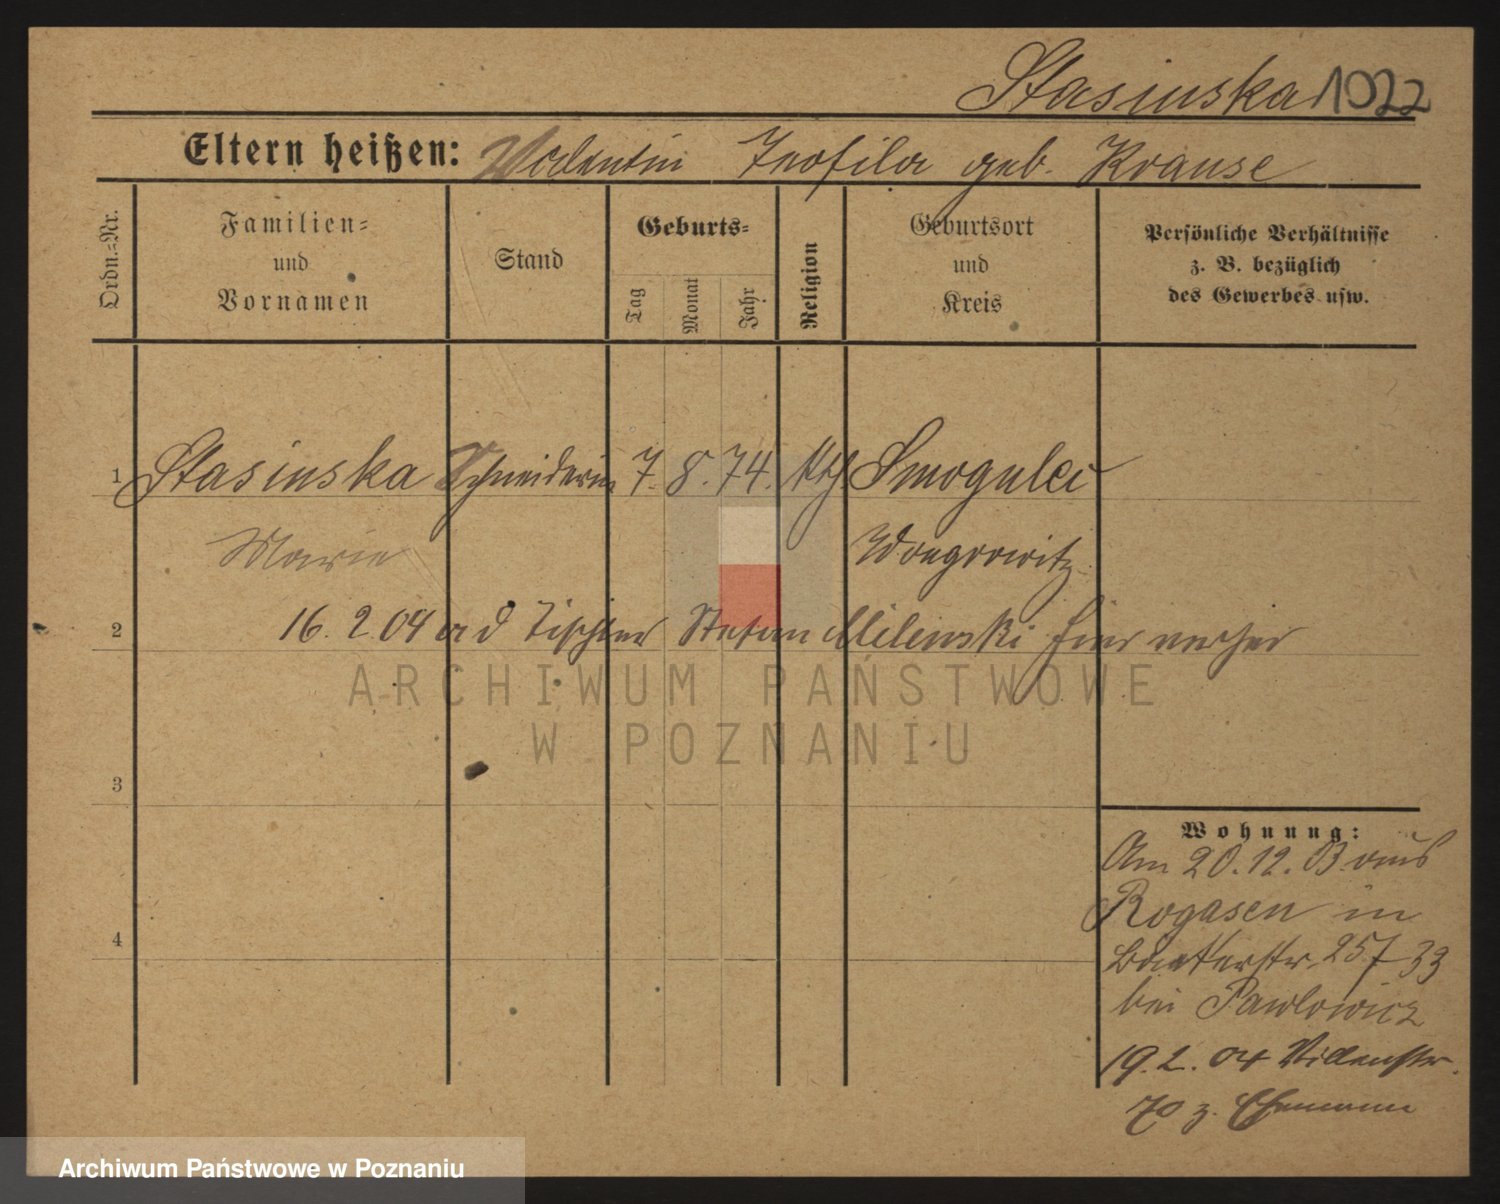 Stasinska 1022
Eltern heißen: Valentin Teofila geb. Krause
Ordn.-Nr.
Familien-
und
Vornamen
Stand
Geburts-
Tag
Monat
Jahr
Religion
Geburtsort
und
Kreis
Persönliche Verhältnisse
z. B. bezüglich
des Gewerbes usw.
1 Stasinska Schneiderin 7. 8. 74. kth Smogulec
Marie Wongrowitz
2 16. 2 04 a d Tischler Stefan Milewski hier verhei
ARCHIWUM PAŃSTWOWE
W POZNANIU
3
4
Wohnung:
Am 20. 12. 03 aus
Rogasen in
25/33
bei Pawlowicz
19. 2. 04
70 z. Ehemann
Archiwum Państwowe w Poznaniu